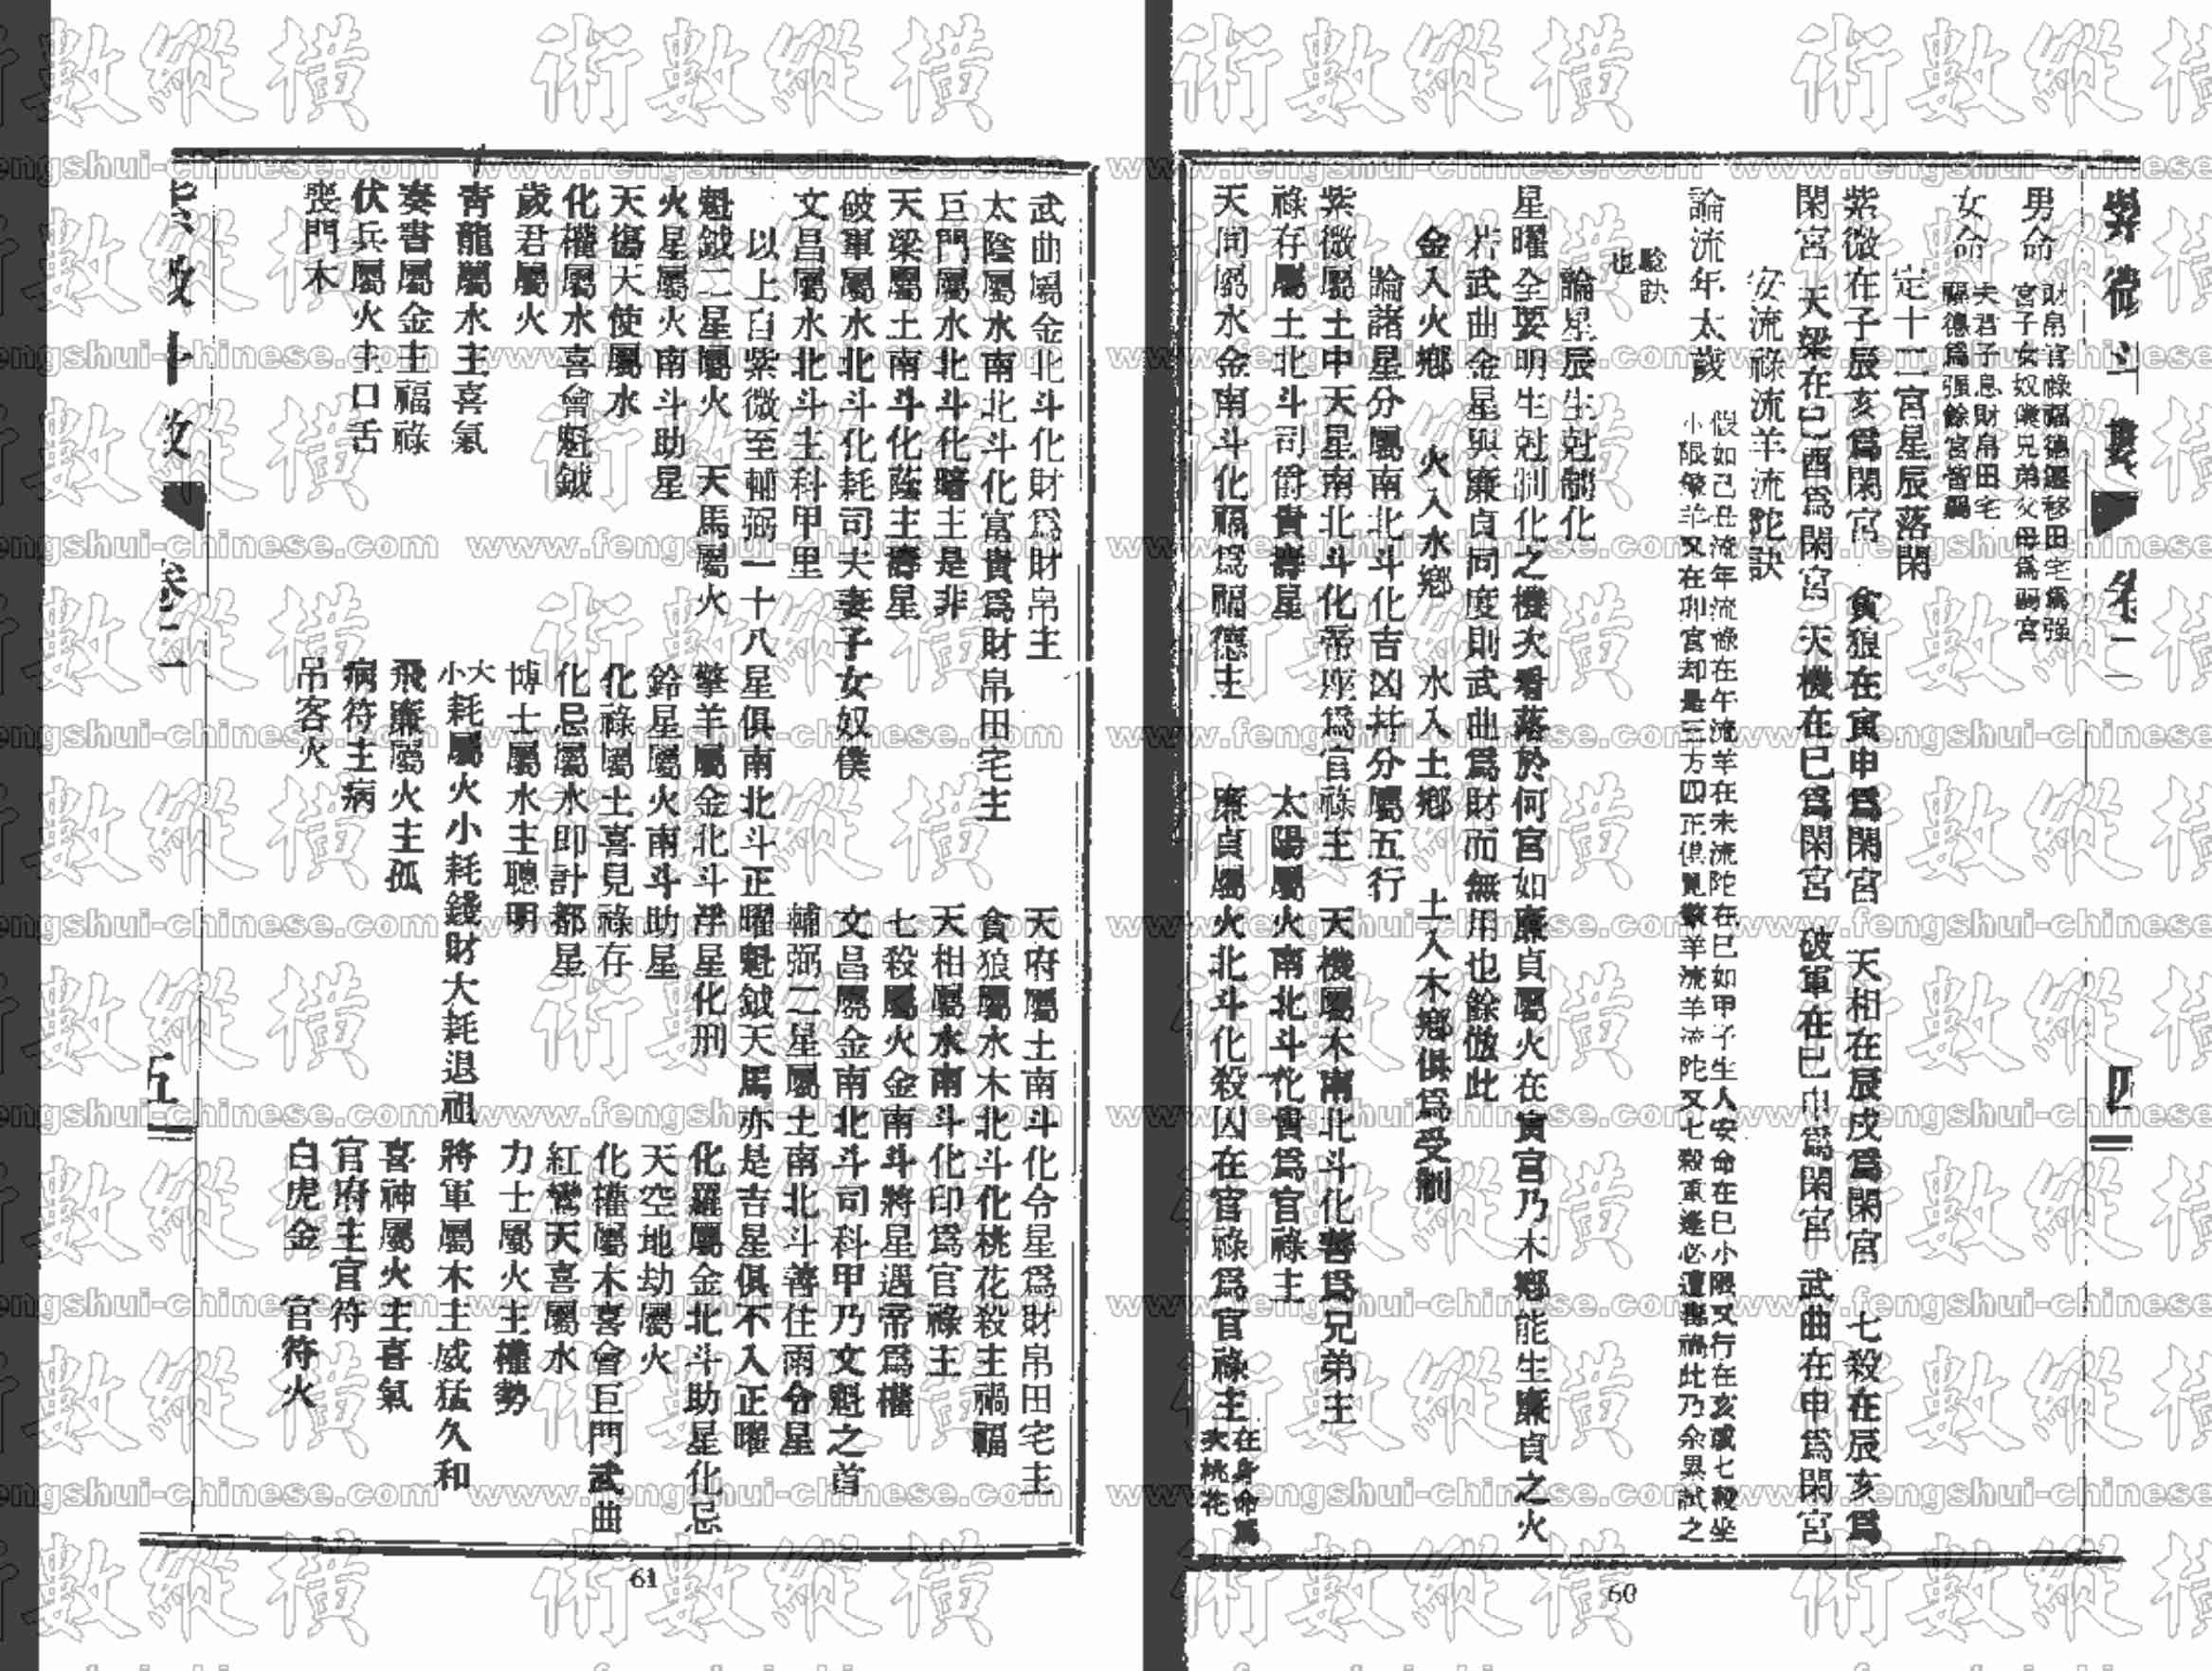 男命 財帛官祿福德遷移田宅為强
宮子女奴僕兄弟父母為弱宮
女命 夫君子息財帛田宅
福德爲强餘宮皆弱
定十二宮星辰落閑
紫微在子辰亥爲閑宮 貪狼在寅申爲閑宮 天相在辰戌爲閑宮 七殺在辰亥爲
閑宮 天梁在巳酉爲閑宮 天機在巳爲閑宮 破軍在巳申爲閑宮 武曲在申爲閑宮
安流祿流羊流陀訣
論流年太歲 假如己丑流年流祿在午流羊在未流陀在巳如甲子生人安命在巳小限又行在亥或七殺坐
小限擎羊又在卯宮却是三方四正俱見擎羊流羊流陀又七殺重逢必遭喪禍此乃余累試之
驗訣
也
論星辰生尅制化
星曜全要明生尅制化之機次看落於何宮如廉貞屬火在寅宮乃木鄉能生廉貞之火
若武曲金星與廉貞同度則武曲爲財而無用也餘倣此
金入火鄉 火入水鄉 水入土鄉 土入木鄉俱爲受制
論諸星分屬南北斗化吉凶幷分屬五行
紫微屬土中天星南北斗化帝座爲官祿主 天機屬木南北斗化善爲兄弟主
祿存屬土北斗司爵貴壽星 太陽屬火南北斗化貴爲官祿主
天同屬水金南斗化福爲福德主 廉貞屬火北斗化殺囚在官祿爲官祿主 在身命爲
次桃花
60
武曲屬金北斗化財爲財帛主 天府屬土南斗化令星爲財帛田宅主
太陰屬水南北斗化富貴爲財帛田宅主 貪狼屬水木北斗化桃花殺主禍福
巨門屬水北斗化暗主是非 天相屬水南斗化印爲官祿主
天梁屬土南斗化蔭主壽星 七殺屬火金南斗將星遇帝爲權
破軍屬水北斗化耗司夫妻子女奴僕 文昌屬金南北斗司科甲乃文魁之首
文昌屬水北斗主科甲里 輔弼二星屬土南北斗善住雨令星
以上自紫微至輔弼一十八星俱南北斗正曜魁鉞天馬亦是吉星俱不入正曜
魁鉞二星屬火 天馬屬火 擎羊屬金北斗浮星化刑 化羅屬金北斗助星化忌
火星屬火南斗助星 鈴星屬火南斗助星 天空地劫屬火
天傷天使屬水 化祿屬土喜見祿存 化權屬木喜會巨門武曲
化權屬水喜會魁鉞 化忌屬水即計都星 紅鸞天喜屬水
歲君屬火 博士屬水主聰明 力士屬火主權勢
青龍屬水主喜氣 大小耗屬火小耗錢財大耗退祖 將軍屬木主威猛久和
奏書屬金主福祿 飛廉屬火主孤 喜神屬火主喜氣
伏兵屬火主口舌 病符主病 官府主官符
喪門木 吊客火 白虎金 官符火
卷二
五
61